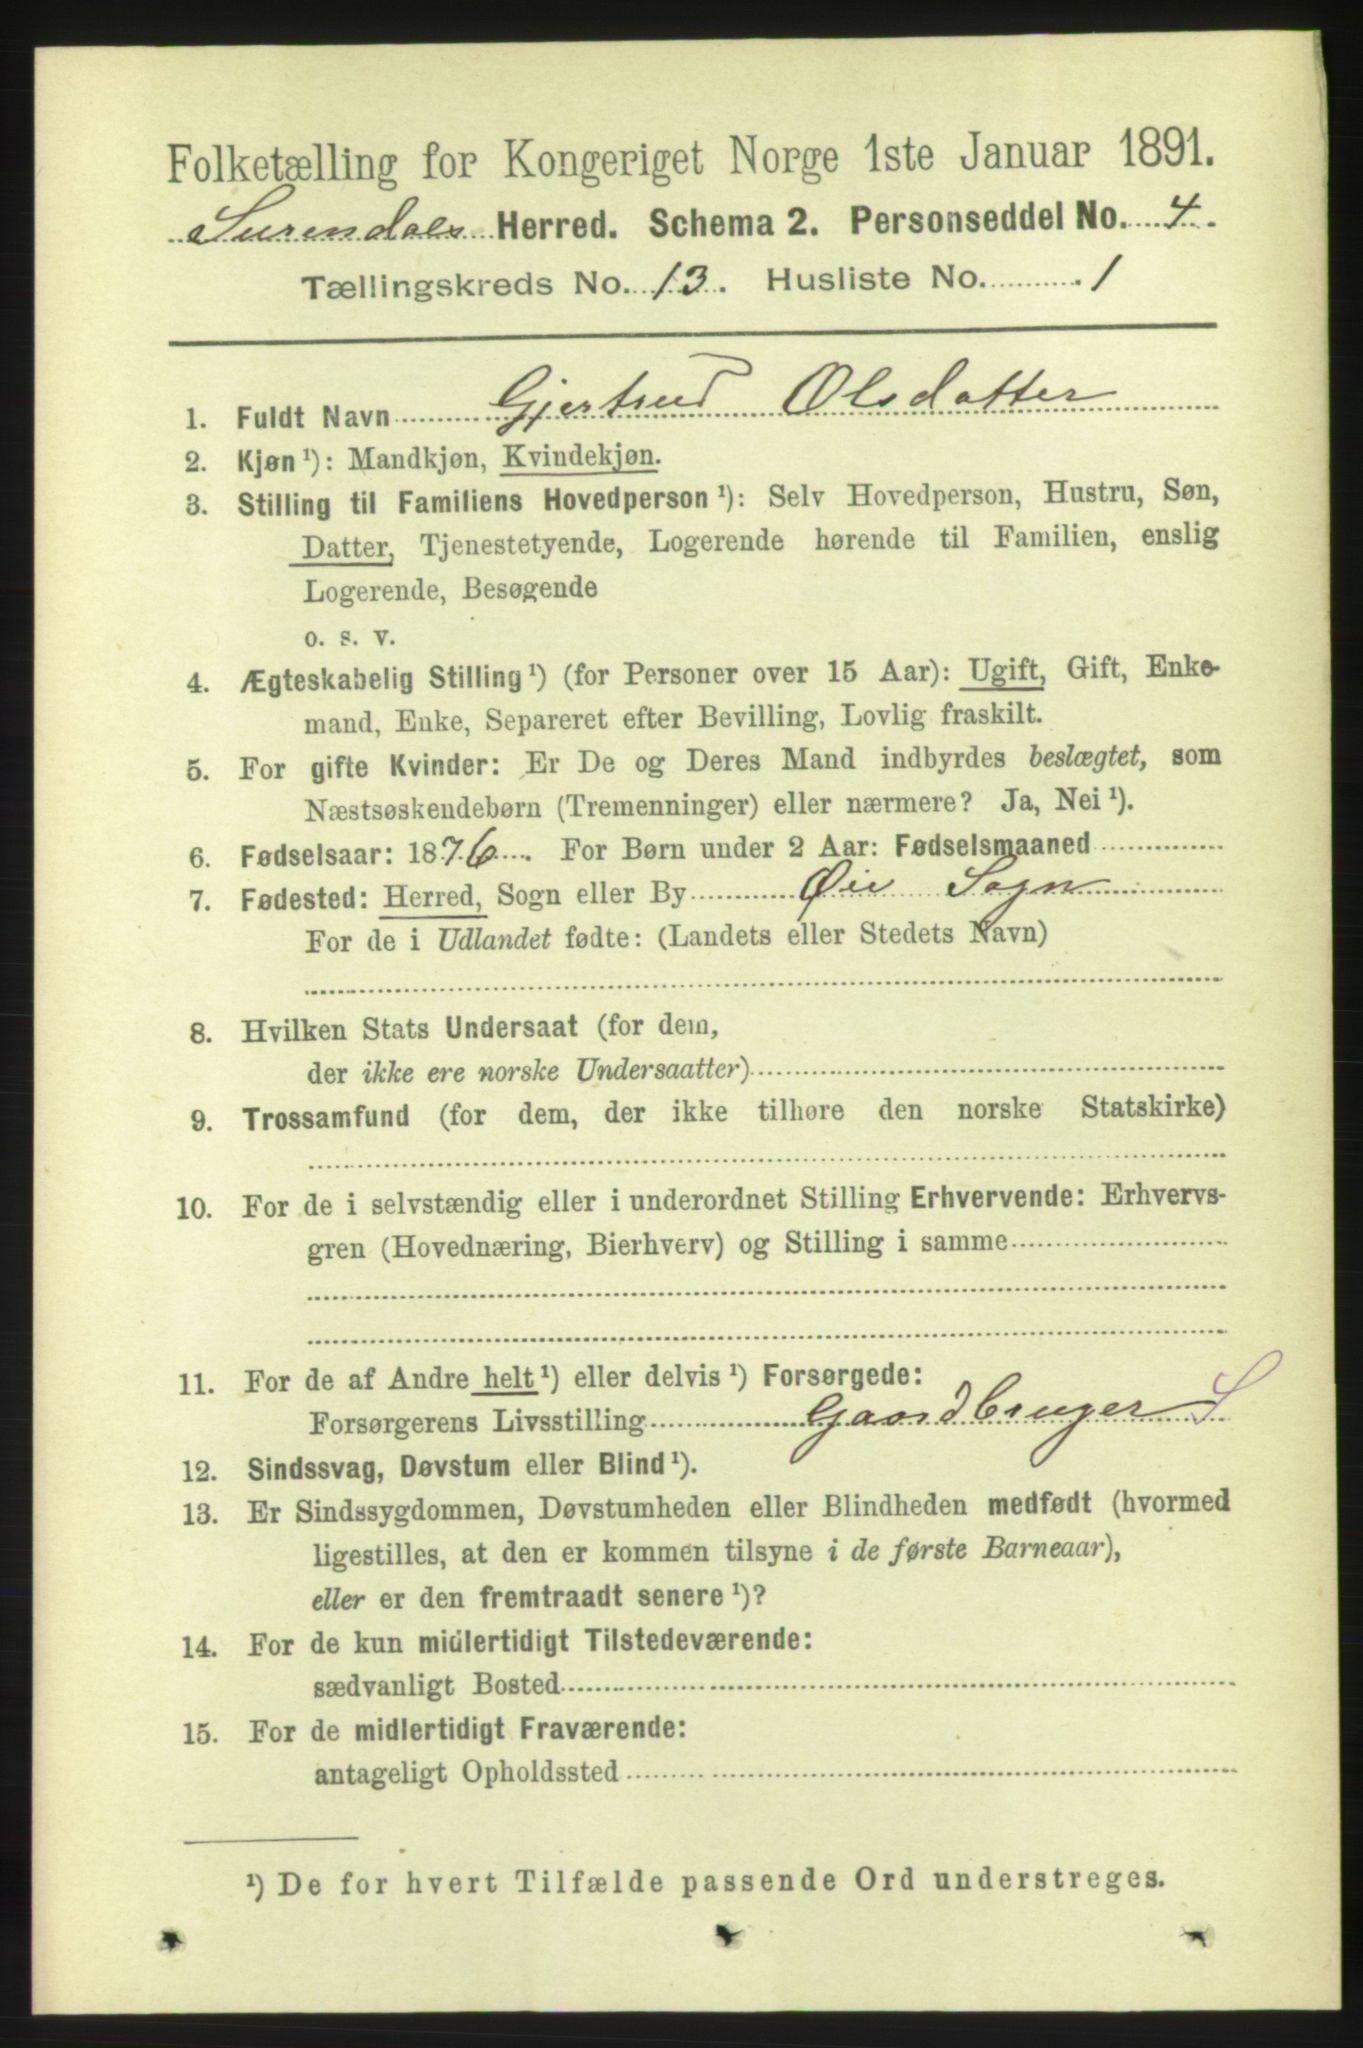 Folketælling for Kongeriget Norge 1ste Januar 1891.
Surendals Herred. Schema 2. Personseddel No. 4.
Tællingskreds No. 13. Husliste No. 1
1. Fuldt Navn Gjertrud Olsdatter
2. Kjøn ¹): Mandkjøn, Kvindekjøn.
3. Stilling til Familiens Hovedperson ¹): Selv Hovedperson, Hustru, Søn,
Datter, Tjenestetyende, Logerende hørende til Familien, enslig
Logerende, Besøgende
o. s. v.
4. Ægteskabelig Stilling ¹) (for Personer over 15 Aar): Ugift, Gift, Enke-
mand, Enke, Separeret efter Bevilling, Lovlig fraskilt.
5. For gifte Kvinder: Er De og Deres Mand indbyrdes beslægtet, som
Næstsøskendebørn (Tremenninger) eller nærmere? Ja, Nei ¹).
6. Fødselsaar: 1876. For Børn under 2 Aar: Fødselsmaaned
7. Fødested: Herred, Sogn eller By Øie Sogn
For de i Udlandet fødte: (Landets eller Stedets Navn)
8. Hvilken Stats Undersaat (for dem,
der ikke ere norske Undersaatter)
9. Trossamfund (for dem, der ikke tilhøre den norske Statskirke)
10. For de i selvstændig eller i underordnet Stilling Erhvervende: Erhvervs-
gren (Hovednæring, Bierhverv) og Stilling i samme
11. For de af Andre helt ¹) eller delvis ¹) Forsørgede:
Forsørgerens Livsstilling Gaardbruger S
12. Sindssvag, Døvstum eller Blind ¹).
13. Er Sindssygdommen, Døvstumheden eller Blindheden medfødt (hvormed
ligestilles, at den er kommen tilsyne i de første Barneaar),
eller er den fremtraadt senere ¹)?
14. For de kun midlertidigt Tilstedeværende:
sædvanligt Bosted
15. For de midlertidigt Fraværende:
antageligt Opholdssted
¹) De for hvert Tilfælde passende Ord understreges.